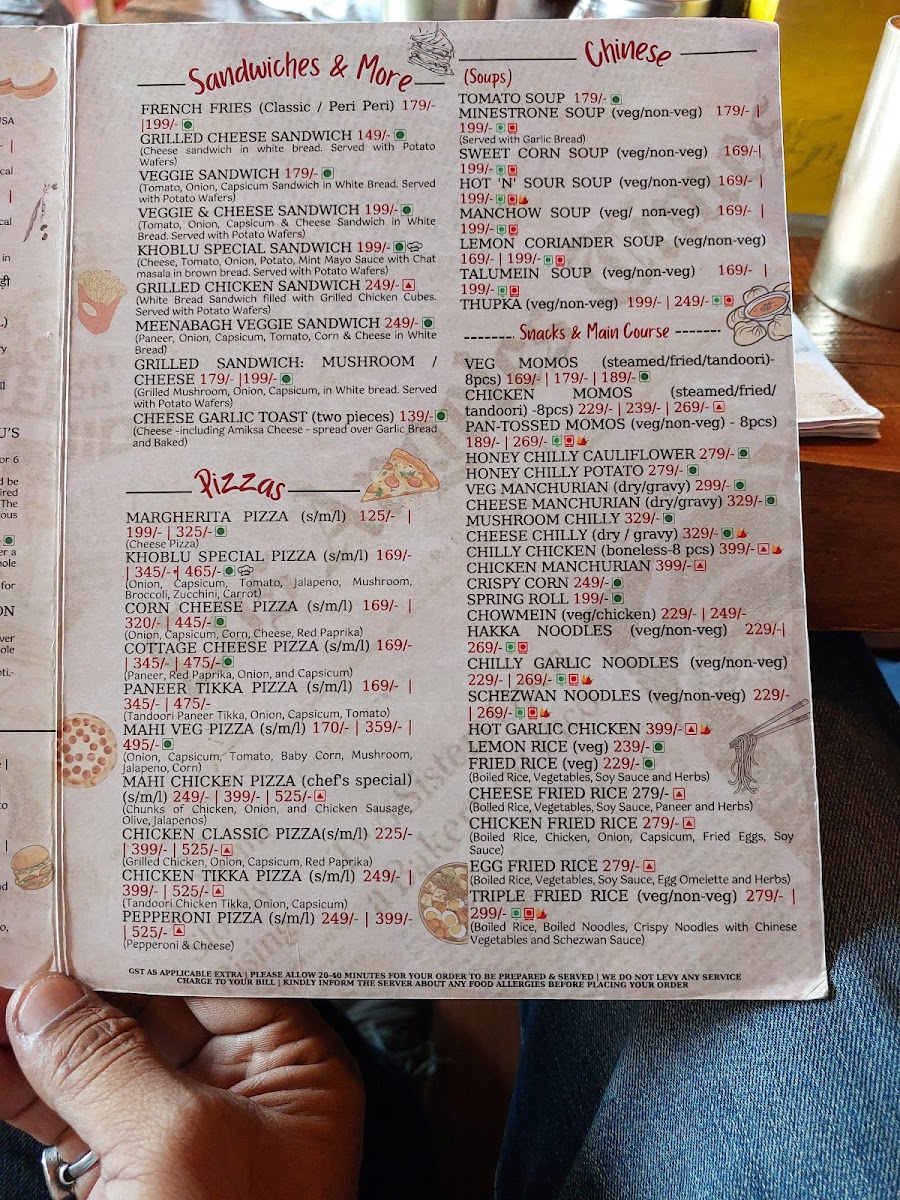 Sandwiches & More
FRENCH FRIES (Classic / Peri Peri) 179/-
|199/-
GRILLED CHEESE SANDWICH 149/-
(Cheese sandwich in white bread. Served with Potato
Wafers)
VEGGIE SANDWICH 179/-
(Tomato, Onion, Capsicum Sandwich in White Bread. Served
with Potato Wafers)
VEGGIE & CHEESE SANDWICH 199/-
(Tomato, Onion, Capsicum & Cheese Sandwich in White
Bread. Served with Potato Wafers)
KHOBLU SPECIAL SANDWICH 199/-
(Cheese, Tomato, Onion, Potato, Mint Mayo Sauce with Chat
masala in brown bread. Served with Potato Wafers)
GRILLED CHICKEN SANDWICH 249/-
(White Bread Sandwich filled with Grilled Chicken Cubes.
Served with Potato Wafers)
MEENABAGH VEGGIE SANDWICH 249/-
(Paneer, Onion, Capsicum, Tomato, Corn & Cheese in White
Bread)
GRILLED SANDWICH: MUSHROOM /
CHEESE 179/- |199/-
(Grilled Mushroom, Onion, Capsicum, in White bread. Served
with Potato Wafers)
CHEESE GARLIC TOAST (two pieces) 139/-
(Cheese -including Amiksa Cheese - spread over Garlic Bread
and Baked)
Pizzas
MARGHERITA PIZZA (s/m/l) 125/- |
199/- | 325/-
(Cheese Pizza)
KHOBLU SPECIAL PIZZA (s/m/l) 169/-
| 345/- | 465/-
(Onion, Capsicum, Tomato, Jalapeno, Mushroom,
Broccoli, Zucchini, Carrot)
CORN CHEESE PIZZA (s/m/l) 169/- |
320/- | 445/-
(Onion, Capsicum, Corn, Cheese, Red Paprika)
COTTAGE CHEESE PIZZA (s/m/l) 169/-
| 345/- | 475/-
(Paneer, Red Paprika, Onion, and Capsicum)
PANEER TIKKA PIZZA (s/m/l) 169/- |
345/- | 475/-
(Tandoori Paneer Tikka, Onion, Capsicum, Tomato)
MAHI VEG PIZZA (s/m/l) 170/- | 359/- |
495/-
(Onion, Capsicum, Tomato, Baby Corn, Mushroom,
Jalapeno, Corn)
MAHI CHICKEN PIZZA (chef's special)
(s/m/l) 249/- | 399/- | 525/-
(Chunks of Chicken, Onion, and Chicken Sausage,
Olive, Jalapenos)
CHICKEN CLASSIC PIZZA(s/m/l) 225/-
| 399/- | 525/-
(Grilled Chicken, Onion, Capsicum, Red Paprika)
CHICKEN TIKKA PIZZA (s/m/l) 249/- |
399/- | 525/-
(Tandoori Chicken Tikka, Onion, Capsicum)
PEPPERONI PIZZA (s/m/l) 249/- | 399/-
| 525/-
(Pepperoni & Cheese)
Chinese
(Soups)
TOMATO SOUP 179/-
MINESTRONE SOUP (veg/non-veg) 179/- |
199/-
(Served with Garlic Bread)
SWEET CORN SOUP (veg/non-veg) 169/-|
199/-
HOT 'N' SOUR SOUP (veg/non-veg) 169/- |
199/-
MANCHOW SOUP (veg/ non-veg) 169/- |
199/-
LEMON CORIANDER SOUP (veg/non-veg)
169/- | 199/-
TALUMEIN SOUP (veg/non-veg) 169/- |
199/-
THUPKA (veg/non-veg) 199/- | 249/-
Snacks & Main Course
VEG MOMOS (steamed/fried/tandoori)-
8pcs) 169/- | 179/- | 189/-
CHICKEN MOMOS (steamed/fried/
tandoori) -8pcs) 229/- | 239/- | 269/-
PAN-TOSSED MOMOS (veg/non-veg) - 8pcs)
189/- | 269/-
HONEY CHILLY CAULIFLOWER 279/-
HONEY CHILLY POTATO 279/-
VEG MANCHURIAN (dry/gravy) 299/-
CHEESE MANCHURIAN (dry/gravy) 329/-
MUSHROOM CHILLY 329/-
CHEESE CHILLY (dry / gravy) 329/-
CHILLY CHICKEN (boneless-8 pcs) 399/-
CHICKEN MANCHURIAN 399/-
CRISPY CORN 249/-
SPRING ROLL 199/-
CHOWMEIN (veg/chicken) 229/- | 249/-
HAKKA NOODLES (veg/non-veg) 229/-|
269/-
CHILLY GARLIC NOODLES (veg/non-veg)
229/- | 269/-
SCHEZWAN NOODLES (veg/non-veg) 229/-
| 269/-
HOT GARLIC CHICKEN 399/-
LEMON RICE (veg) 239/-
FRIED RICE (veg) 229/-
(Boiled Rice, Vegetables, Soy Sauce and Herbs)
CHEESE FRIED RICE 279/-
(Boiled Rice, Vegetables, Soy Sauce, Paneer and Herbs)
CHICKEN FRIED RICE 279/-
(Boiled Rice, Chicken, Onion, Capsicum, Fried Eggs, Soy
Sauce)
EGG FRIED RICE 279/-
(Boiled Rice, Vegetables, Soy Sauce, Egg Omelette and Herbs)
TRIPLE FRIED RICE (veg/non-veg) 279/- |
299/-
(Boiled Rice, Boiled Noodles, Crispy Noodles with Chinese
Vegetables and Schezwan Sauce)
GST AS APPLICABLE EXTRA | PLEASE ALLOW 20-40 MINUTES FOR YOUR ORDER TO BE PREPARED & SERVED | WE DO NOT LEVY ANY SERVICE
CHARGE TO YOUR BILL | KINDLY INFORM THE SERVER ABOUT ANY FOOD ALLERGIES BEFORE PLACING YOUR ORDER